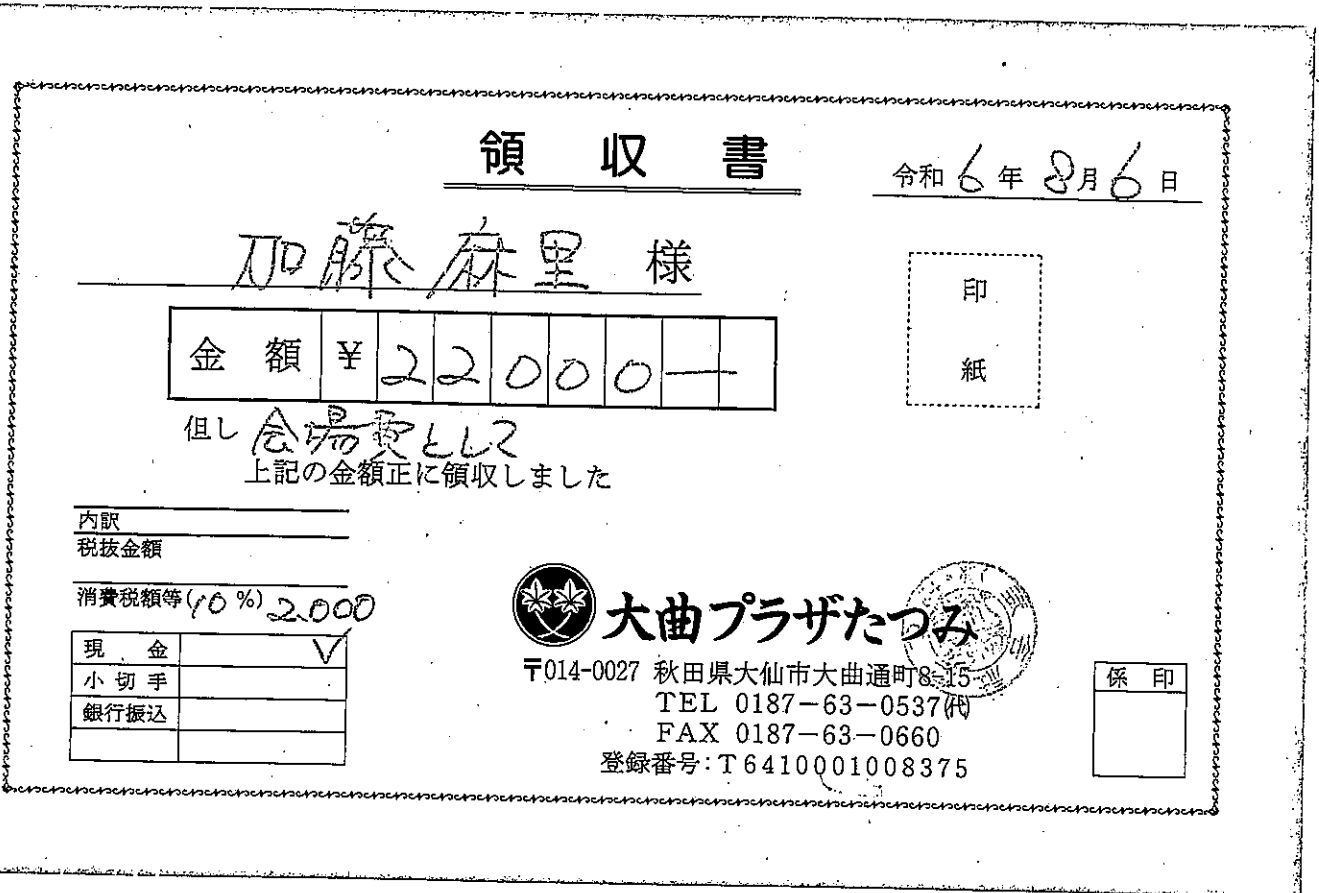 領収書
令和6年8月6日
加藤麻里 様
金額 ¥22000—
但し 会場費として
上記の金額正に領収しました
印紙
内訳
税抜金額
消費税額等(10%) 2.000
現金 ✓
小切手
銀行振込
大曲プラザたつみ
〒014-0027 秋田県大仙市大曲通町8-15
TEL 0187-63-0537(代)
FAX 0187-63-0660
登録番号:T6410001008375
係印